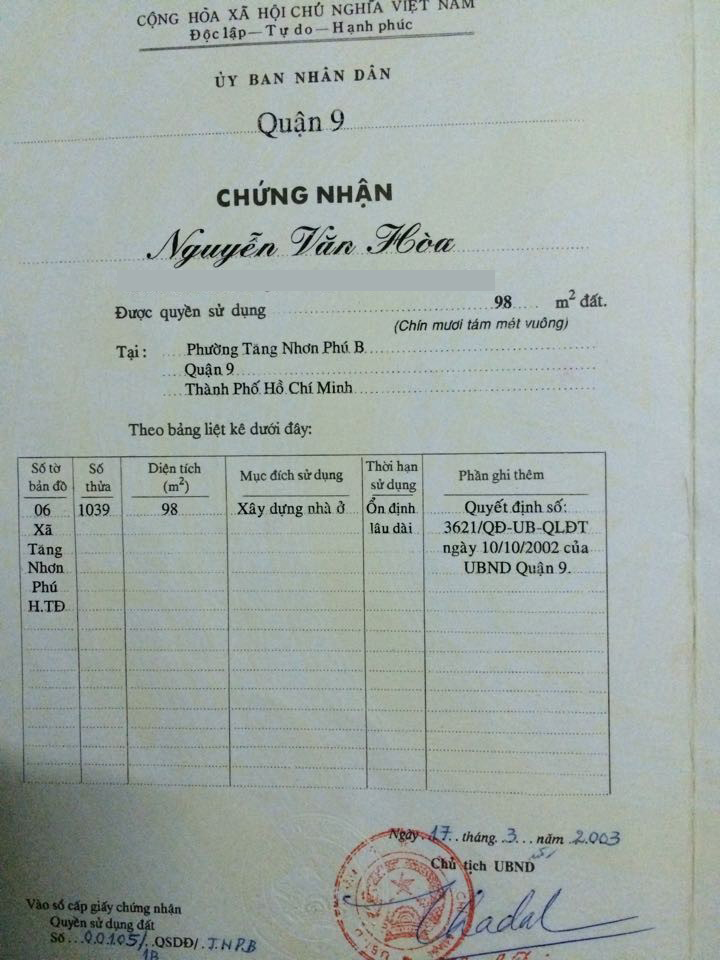 CỘNG HÒA XÃ HỘI CHỦ NGHĨA VIỆT NAM
Độc lập — Tự do — Hạnh phúc
ỦY BAN NHÂN DÂN
Quận 9
CHỨNG NHẬN
Nguyễn Văn Hòa
Được quyền sử dụng 98 m² đất.
(Chín mươi tám mét vuông)
Tại : Phường Tăng Nhơn Phú B
Quận 9
Thành Phố Hồ Chí Minh
Theo bảng liệt kê dưới đây:
Số tờ bản đồ Số thửa Diện tích (m²) Mục đích sử dụng Thời hạn sử dụng Phần ghi thêm
06 1039 98 Xây dựng nhà ở Ổn định Quyết định số:
Xã lâu dài 3621/QĐ-UB-QLĐT
Tăng ngày 10/10/2002 của
Nhơn UBND Quận 9.
Phú
H.TĐ
Ngày 17 tháng 3 năm 2003
Chủ tịch UBND
Vào sổ cấp giấy chứng nhận
Quyền sử dụng đất
Số 00105/ QSDĐ/ T.N.P.B
1B